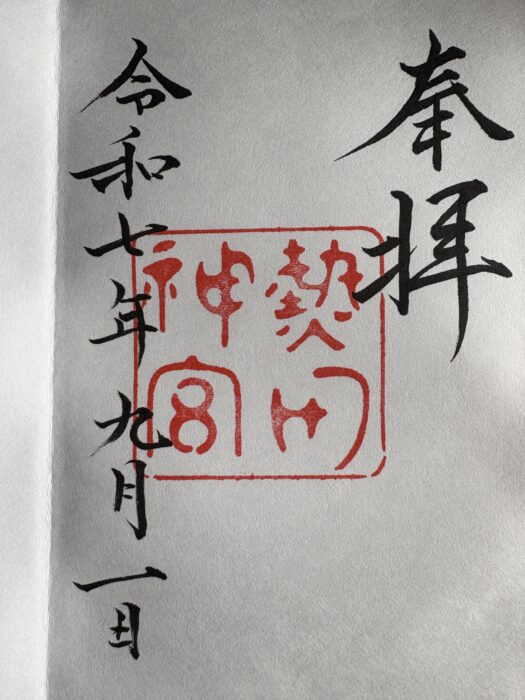 奉拝
熱田
神宮
令和七年九月一日